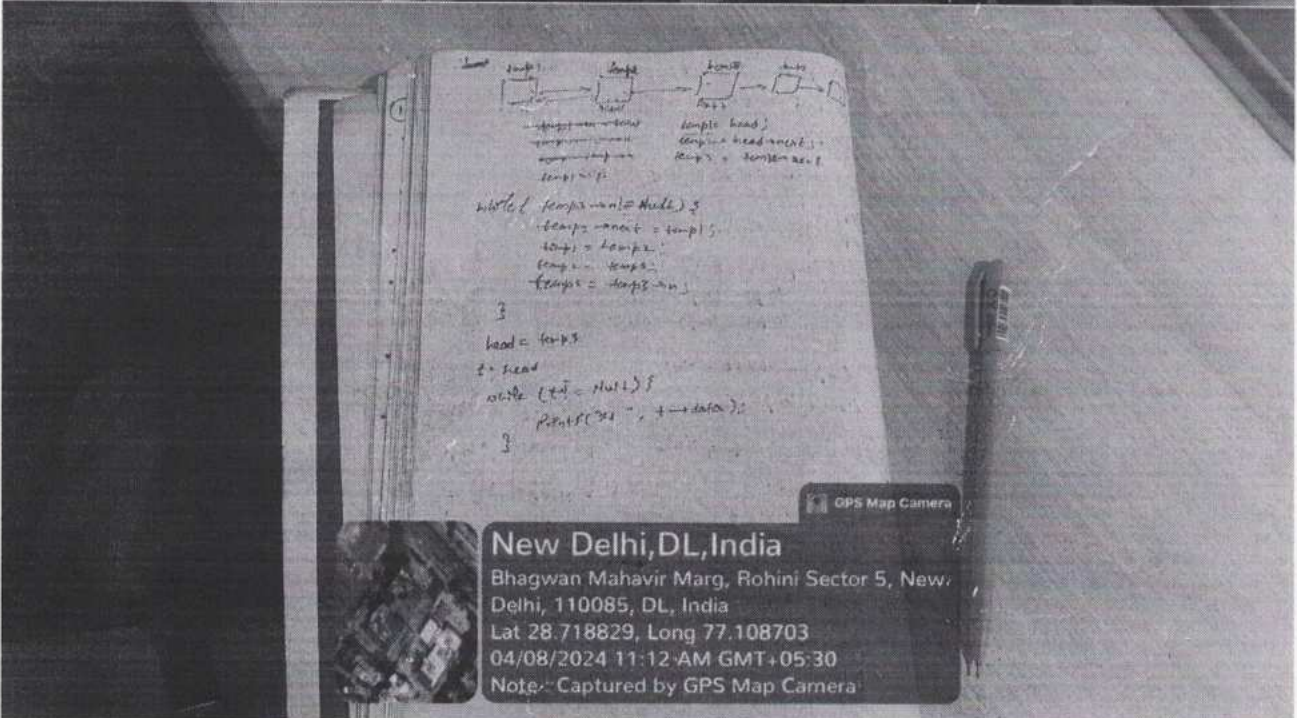 temp1 = head;
while ( temp3→n != NULL) {
temp2→next = temp1;
temp1 = temp2;
temp2 = temp3;
temp3 = temp3→n;
}
head = temp3
t = head
while (t != NULL) {
printf("%d ", t→data);
}
GPS Map Camera
New Delhi,DL,India
Bhagwan Mahavir Marg, Rohini Sector 5, New
Delhi, 110085, DL, India
Lat 28.718829, Long 77.108703
04/08/2024 11:12 AM GMT+05:30
Note: Captured by GPS Map Camera